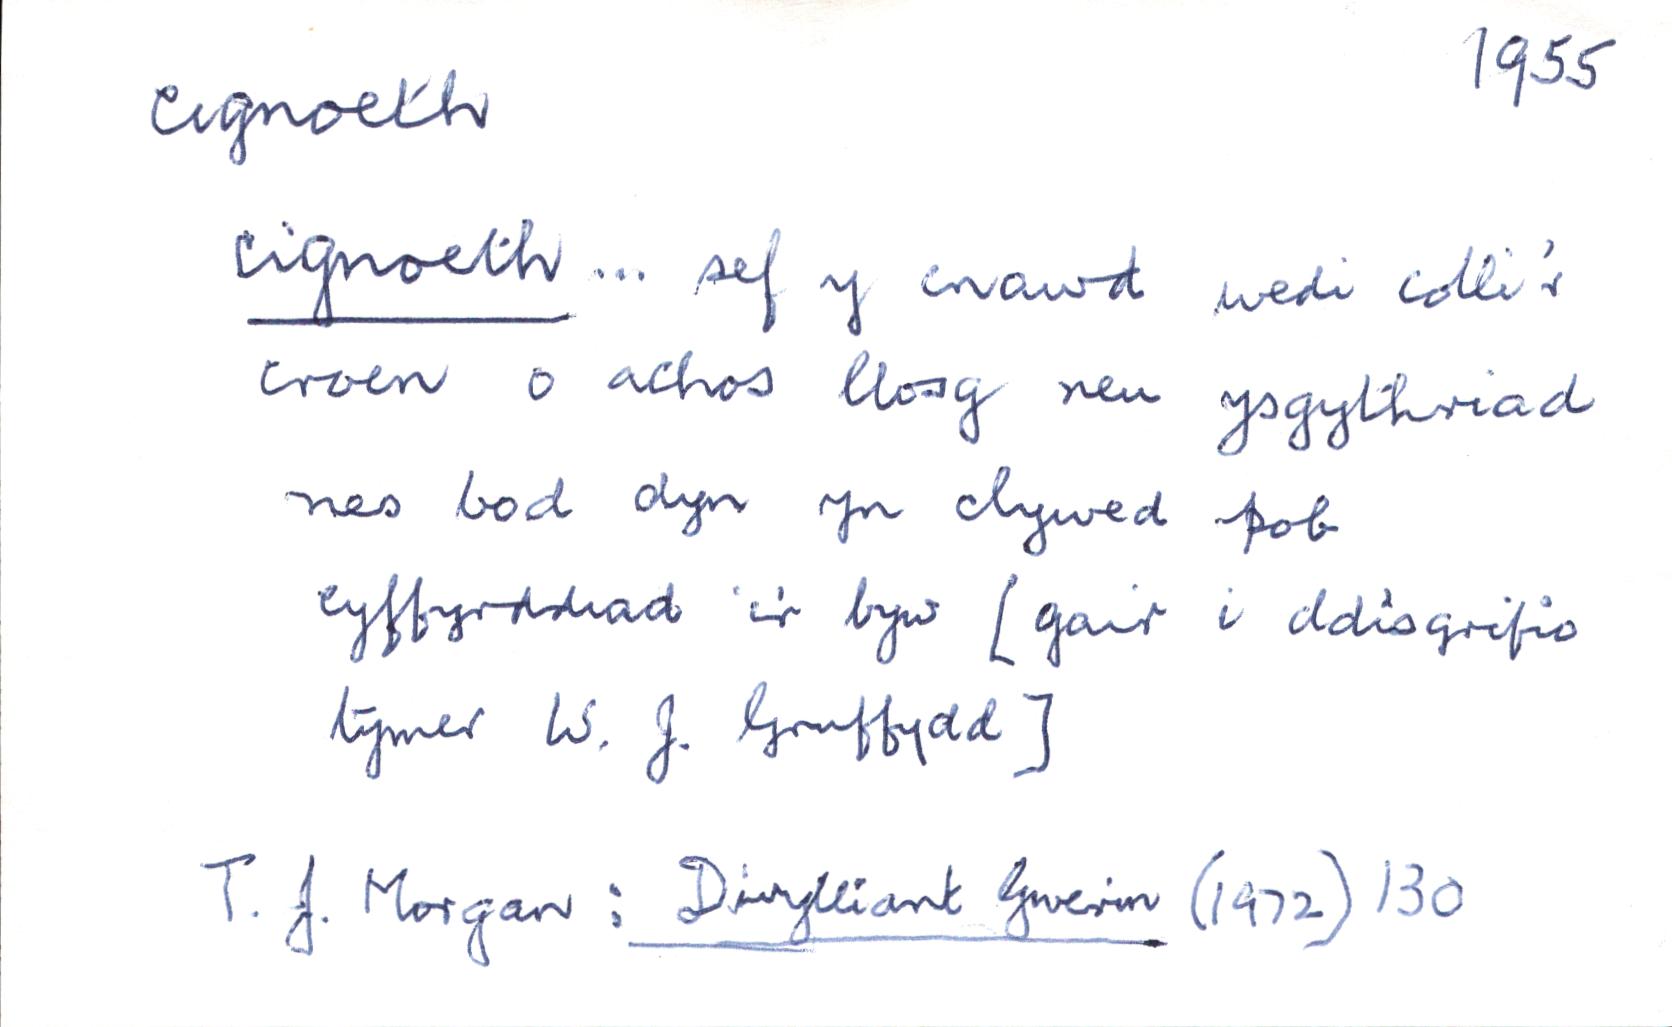 1955
cignoeth
cignoeth ... sef y cnawd wedi colli'r
croen o achos llosg neu ysgythriad
nes bod dyn yn clywed pob
cyffyrddiad i'r byw [gair i ddisgrifio
tymer W. J. Gruffydd]
T. J. Morgan : Diwylliant Gwerin (1972) 130